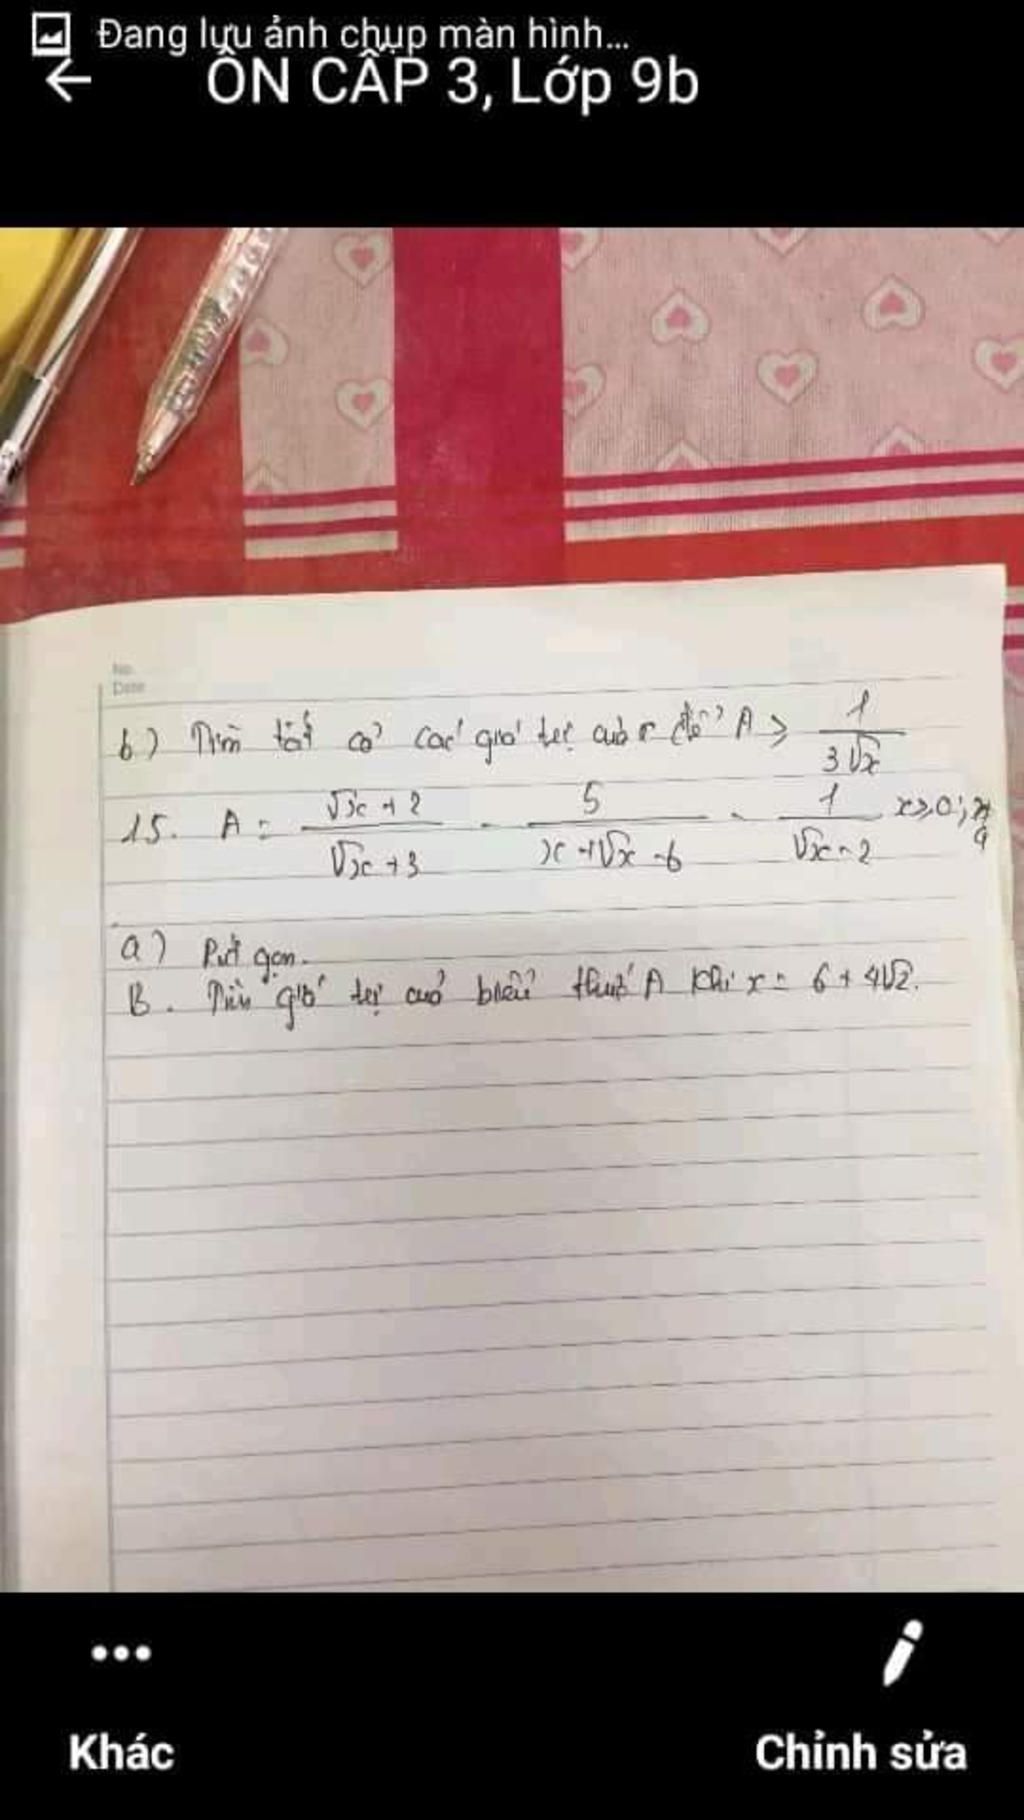 Đang lưu ảnh chụp màn hình...
ÔN CẤP 3, Lớp 9b
No.
Date
b) Tìm tất cả các giá trị của x để A ≥ 1/(3√x)
15. A = (√x + 2)/(√x + 3) - 5/(x + √x - 6) - 1/(√x - 2) x ≥ 0; x
4
a) Rút gọn.
B. Tìm giá trị của biểu thức A khi x = 6 + 4√2.
Khác
Chỉnh sửa